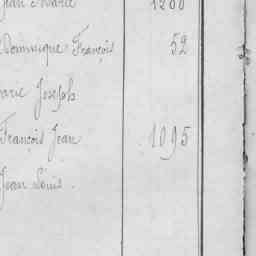 Jean Marie 1200
Dominique François 52
arie Joseph
François Jean 1095
Jean Louis.